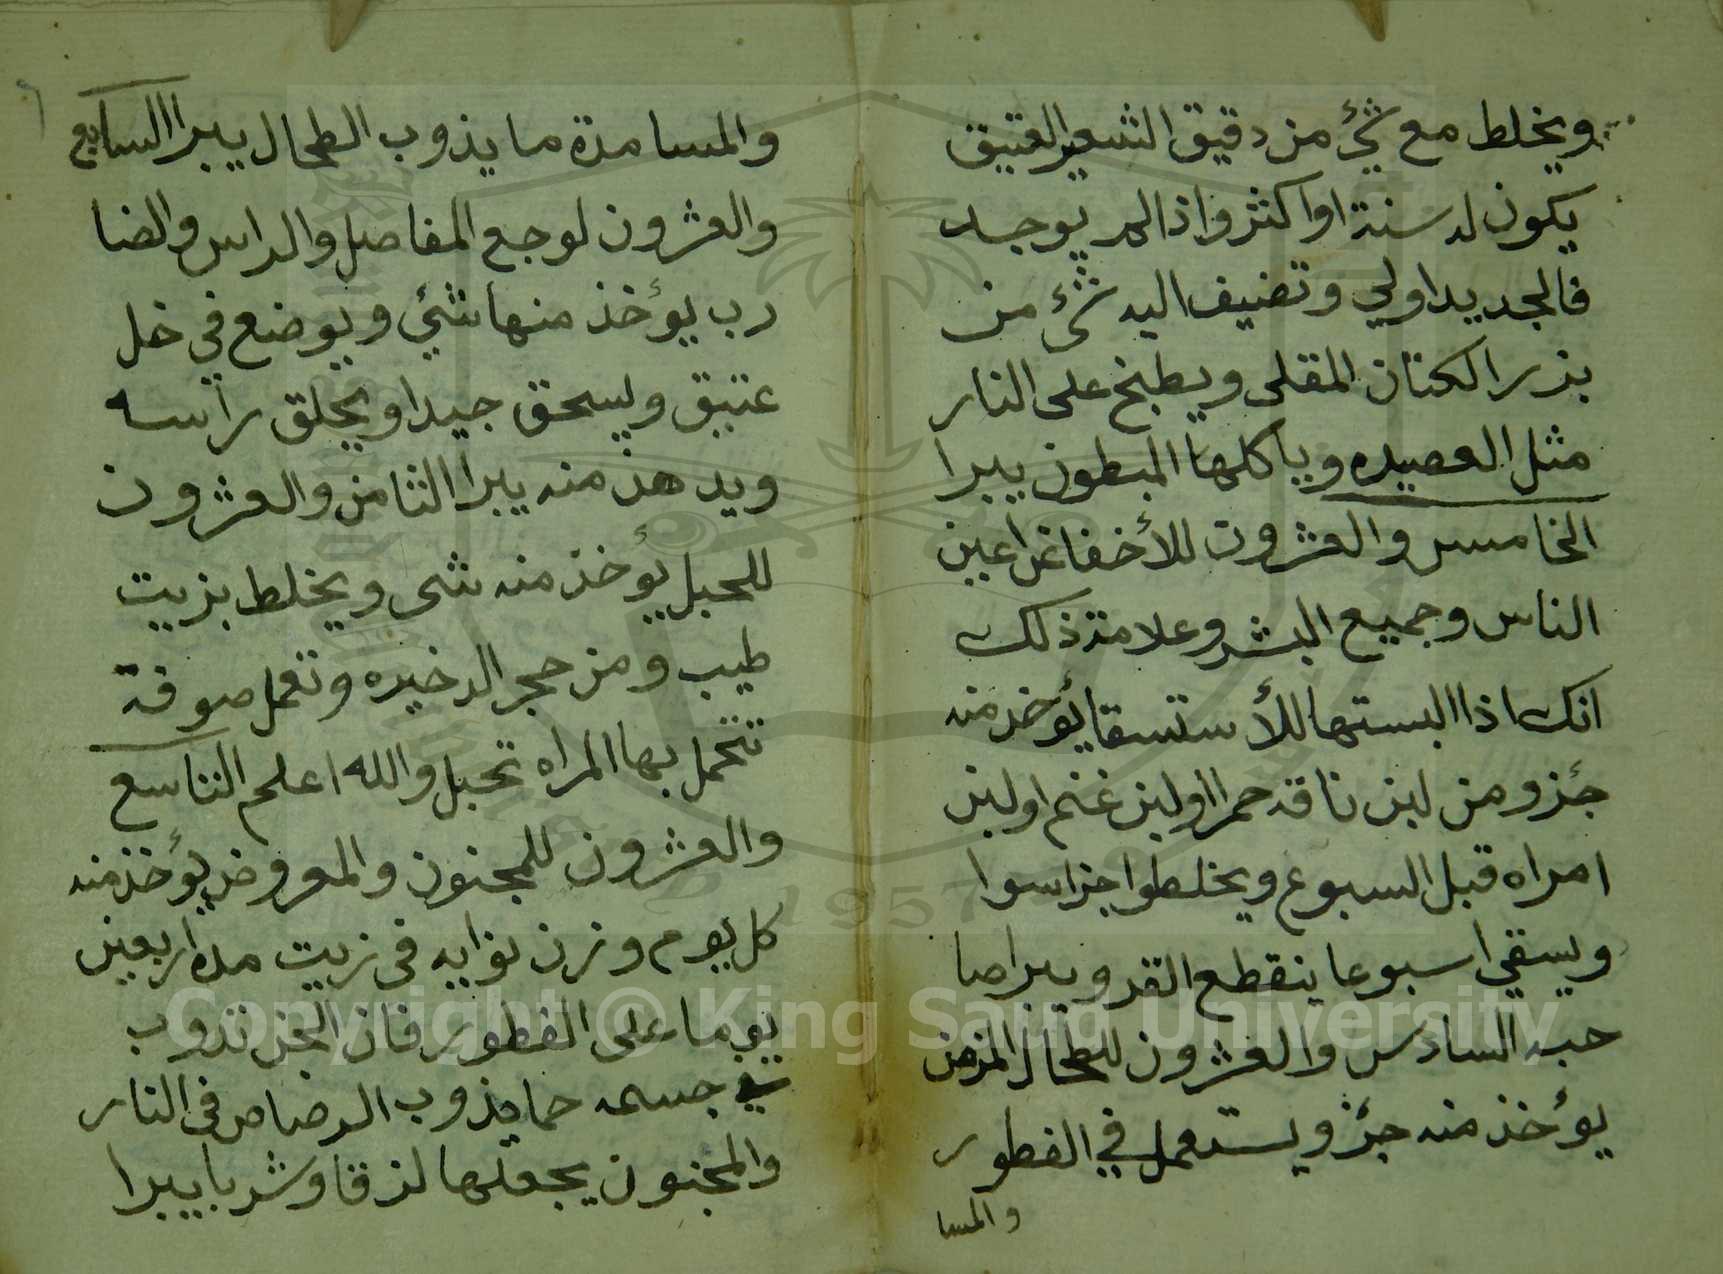 ويخلط مع شئ من دقيق الشعير العتيق
يكون له سنة او اكثر واذا لم يوجد
فالجديد اولي وتضيف اليه شئ من
بذر الكتان المقلى ويطبخ على النار
مثل العصيده وياكلها المبطون يبرا
الخامس والعشرون للأخفا عن اعين
الناس وجميع البشر وعلامة ذلك
انك اذا البستها للأستسقا يؤخذ منه
جزو من لبن ناقه حمرا او لبن غنم او لبن
امراه قبل السبوع ويخلطوا جزا سوا
ويسقي اسبوعا ينقطع القر ويبرا صا
حبه السادس والعشرون للطحال المزمن
يؤخذ منه جزؤ ويستعمل في الفطور
والمسا
والمسا مدة ما يذوب الطحال يبرا السابع
والعشرون لوجع المفاصل والراس والضا
رب يؤخذ منها شئي ويوضع في خل
عتيق ويسحق جيدا ويحلق رأسه
ويدهن منه يبرا الثامن والعشرون
للحبل يؤخذ منه شى ويخلط بزيت
طيب ومن حجر الدخيره وتعمل صوفة
تتحمل بها المراه تحبل والله اعلم التاسع
والعشرون للمجنون والمعروض يؤخذ منه
كل يوم وزن نوايه فى زيت مدة اربعين
يوما على الفطور فان الجن تذوب
في جسمه كما يذوب الرصاص فى النار
والمجنون يجعلها لزقا وشربا يبرا
Copyright © King Saud University
1957